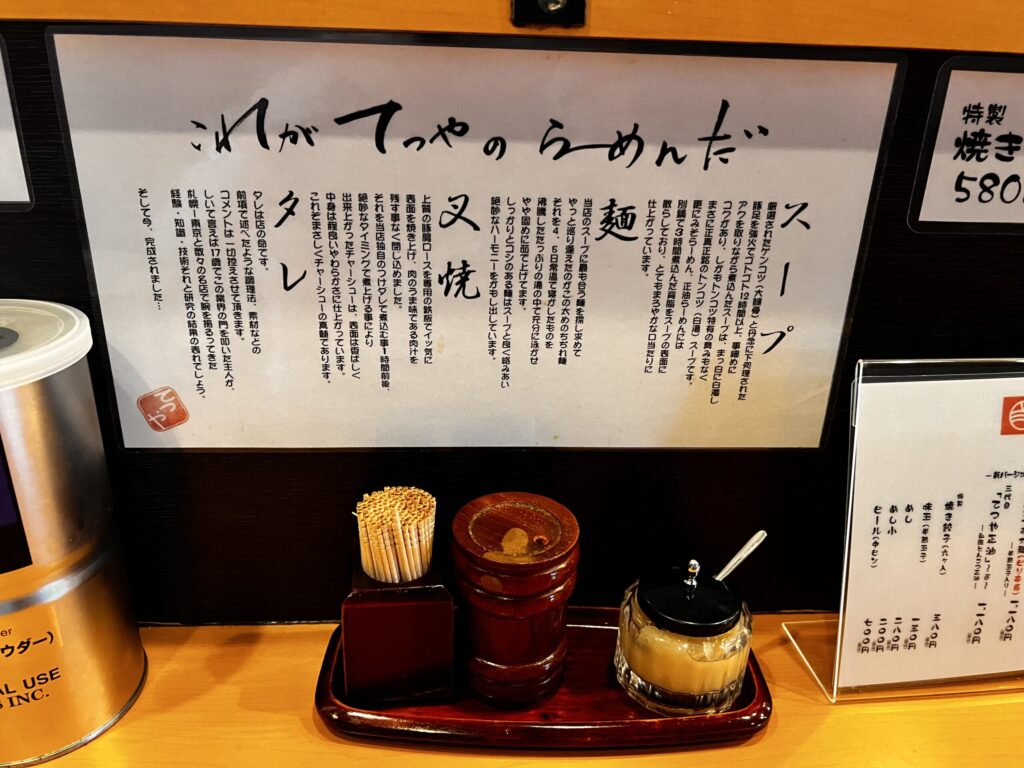 これがてつやのらーめんだ
スープ
厳選されたゲンコツ(大腿骨)と丹念に下処理された
豚足を強火でゴトゴト12時間以上、事細めに
アクを取りながら煮込んだスープは、まっ白に白濁し
コクがあり、しかもトンコツ特有の臭みもなく
まさに正真正銘のトンコツ(白湯)スープです。
更にみそらーめん、正油らーめんには
別鍋で3時間煮込んだ背脂をスープの表面に
散らしており、とてもまろやかな口当たりに
仕上がっています。
麺
当店のスープに最も合う麺を探し求めて
やっと巡り逢えたのがこの太めのちぢれ麺
それを4、5日常温で寝かしたものを
沸騰したたっぷりの湯の中で充分に泳がせ
やや固めに茹で上げてます。
しっかりとコシのある麺はスープと良く絡みあい
絶妙なハーモニーをかもし出しています。
叉焼
上質の豚肩ロースを専用の鉄板でイッ気に
表面を焼き上げ、肉のうま味である肉汁を
残す事なく閉じ込めました。
それを当店独自のつけダレで煮込む事1時間前後、
絶妙なタイミングで煮上げる事により
出来上がったチャーシューは、表面は香ばしく
中身は程良いやわらかさに仕上がっています。
これぞまさしくチャーシューの真髄であります。
タレ
タレは店の命です。
前項で述べたような調理法、素材などの
コメントは一切控えさせて頂きます。
しいて言えば17歳でこの業界の門を叩いた主人が、
札幌ー東京と数々の名店で腕を振るってきた
経験・知識・技術それと研究の結果の表れでしょう。
そして今、完成されました…
てつや
特製
焼き
580
三代目
「てつや正油」
一、一八〇円
特製
焼き餃子(六ヶ入) 三八〇円
味玉(半熟玉子) 一五〇円
めし 二〇〇円
めし小 一八〇円
ビール(中ビン) 七〇〇円
ウダー)
AL USE
S INC.